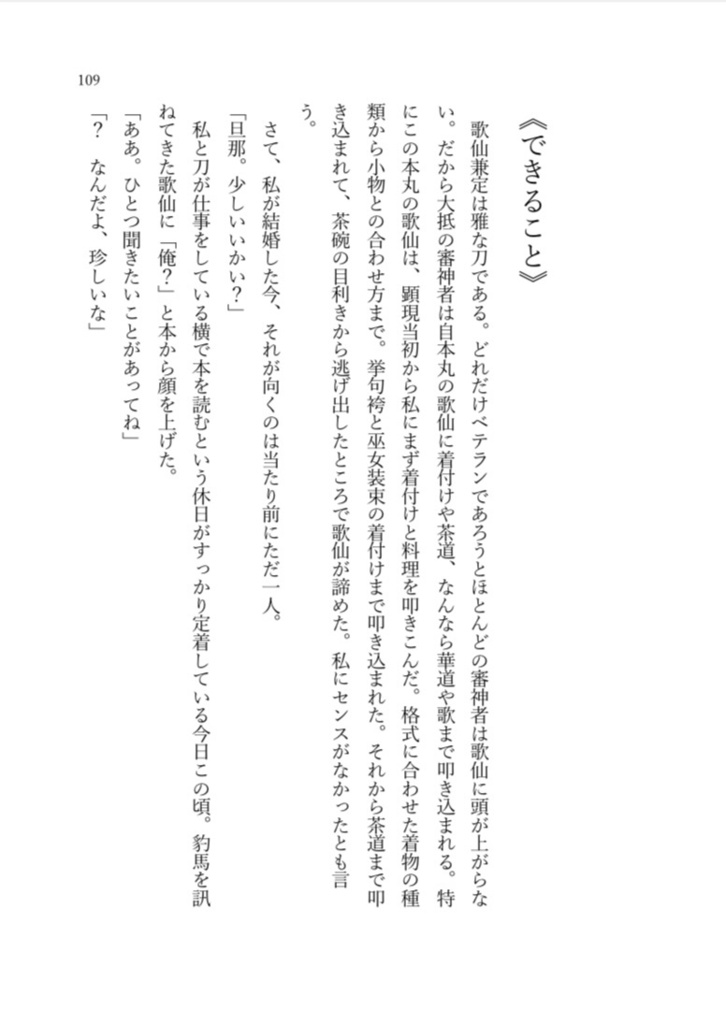 109
《できること》
　歌仙兼定は雅な刀である。どれだけベテランであろうとほとんどの審神者は歌仙に頭が上がらな
い。だから大抵の審神者は自本丸の歌仙に着付けや茶道、なんなら華道や歌まで叩き込まれる。特
にこの本丸の歌仙は、顕現当初から私にまず着付けと料理を叩きこんだ。格式に合わせた着物の種
類から小物との合わせ方まで。挙句袴と巫女装束の着付けまで叩き込まれた。それから茶道まで叩
き込まれて、茶碗の目利きから逃げ出したところで歌仙が諦めた。私にセンスがなかったとも言
う。
　さて、私が結婚した今、それが向くのは当たり前にただ一人。
「旦那。少しいいかい？」
　私と刀が仕事をしている横で本を読むという休日がすっかり定着している今日この頃。豹馬を訊
ねてきた歌仙に「俺？」と本から顔を上げた。
「ああ。ひとつ聞きたいことがあってね」
「？　なんだよ、珍しいな」